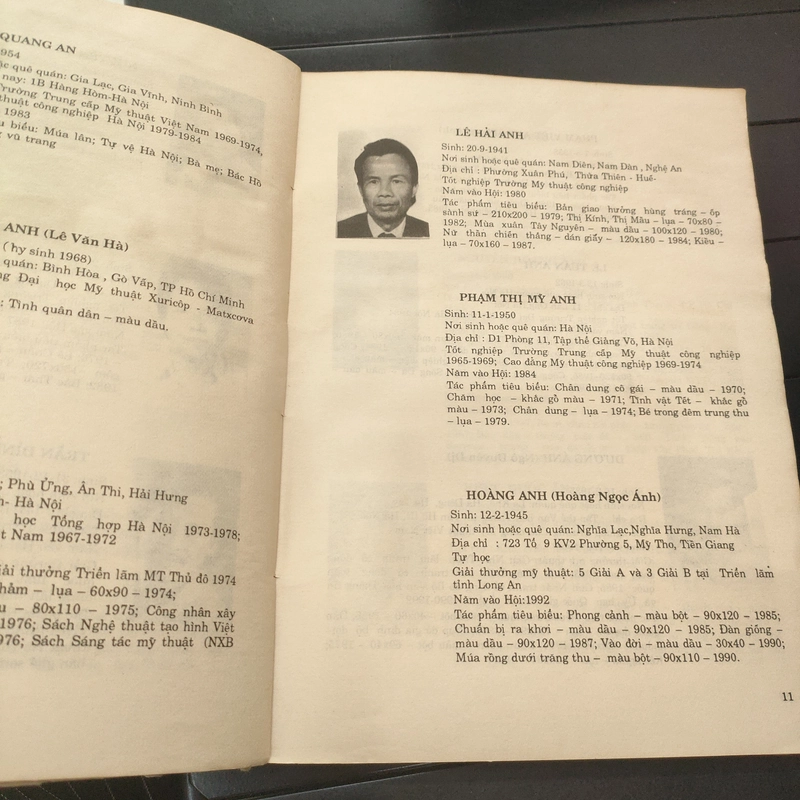 QUANG AN
1954
quê quán: Gia Lạc, Gia Vĩnh, Ninh Bình
nay: 1B Hàng Hòm-Hà Nội
Trường Trung cấp Mỹ thuật Việt Nam 1969-1974,
thuật công nghiệp Hà Nội 1979-1984
1983
biểu: Múa lân; Tự vệ Hà Nội; Bà mẹ; Bác Hồ
vũ trang
ANH (Lê Văn Hà)
(hy sinh 1968)
quán: Bình Hòa, Gò Vấp, TP Hồ Chí Minh
Đại học Mỹ thuật Xuricôp - Matxcova
: Tình quân dân – màu dầu.
; Phù Ửng, Ân Thi, Hải Hưng
- Hà Nội
học Tổng hợp Hà Nội 1973-1978;
Nam 1967-1972
giải thưởng Triển lãm MT Thủ đô 1974
– lụa – 60x90 – 1974;
– 80x110 – 1975; Công nhân xây
1976; Sách Nghệ thuật tạo hình Việt
1976; Sách Sáng tác mỹ thuật (NXB
LÊ HẢI ANH
Sinh: 20-9-1941
Nơi sinh hoặc quê quán: Nam Diên, Nam Đàn, Nghệ An
Địa chỉ : Phường Xuân Phú, Thừa Thiên - Huế-
Tốt nghiệp Trường Mỹ thuật công nghiệp
Năm vào Hội: 1980
Tác phẩm tiêu biểu: Bản giao hưởng hùng tráng – ốp
sành sứ – 210x200 – 1979; Thị Kính, Thị Mầu – lụa – 70x80 –
1982; Mùa xuân Tây Nguyên – màu dầu – 100x120 – 1980;
Nữ thần chiến thắng – dán giấy – 120x180 – 1984; Kiều –
lụa – 70x160 – 1987.
PHẠM THỊ MỸ ANH
Sinh: 11-1-1950
Nơi sinh hoặc quê quán: Hà Nội
Địa chỉ : D1 Phòng 11, Tập thể Giảng Võ, Hà Nội
Tốt nghiệp Trường Trung cấp Mỹ thuật công nghiệp
1965-1969; Cao đẳng Mỹ thuật công nghiệp 1969-1974
Năm vào Hội: 1984
Tác phẩm tiêu biểu: Chân dung cô gái – màu dầu – 1970;
Chăm học – khắc gỗ màu – 1971; Tĩnh vật Tết – khắc gỗ
màu – 1973; Chân dung – lụa – 1974; Bé trong đêm trung thu
– lụa – 1979.
HOÀNG ANH (Hoàng Ngọc Ánh)
Sinh: 12-2-1945
Nơi sinh hoặc quê quán: Nghĩa Lạc,Nghĩa Hưng, Nam Hà
Địa chỉ : 723 Tổ 9 KV2 Phường 5, Mỹ Tho, Tiền Giang
Tự học
Giải thưởng mỹ thuật: 5 Giải A và 3 Giải B tại Triển lãm
tỉnh Long An
Năm vào Hội:1992
Tác phẩm tiêu biểu: Phong cảnh – màu bột – 90x120 – 1985;
Chuẩn bị ra khơi – màu dầu – 90x120 – 1985; Đàn giống –
màu dầu – 90x120 – 1987; Vào đời – màu dầu – 30x40 – 1990;
Múa rồng dưới trăng thu – màu bột – 90x110 – 1990.
11